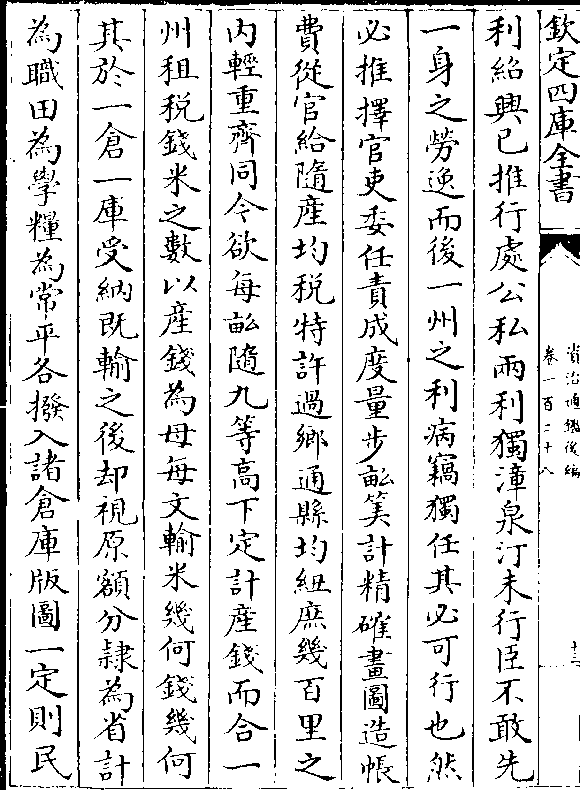 欽定四庫全書
資治通鑑後編
卷一百二十八
十三
利紹興已推行處公私兩利獨漳泉汀未行臣不敢先
一身之勞逸而後一州之利病竊獨任其必可行也然
必推擇官吏委任責成度量步畝筭計精確畫圖造帳
費從官給隨産均税特許過鄉通縣均紐庶幾百里之
内輕重齊同今欲每畝隨九等高下定計産錢而合一
州租税錢米之數以産錢為母每文輸米幾何錢幾何
其於一倉一庫受納既輸之後却視原額分隸為省計
為職田為學糧為常平各撥入諸倉庫版圖一定則民